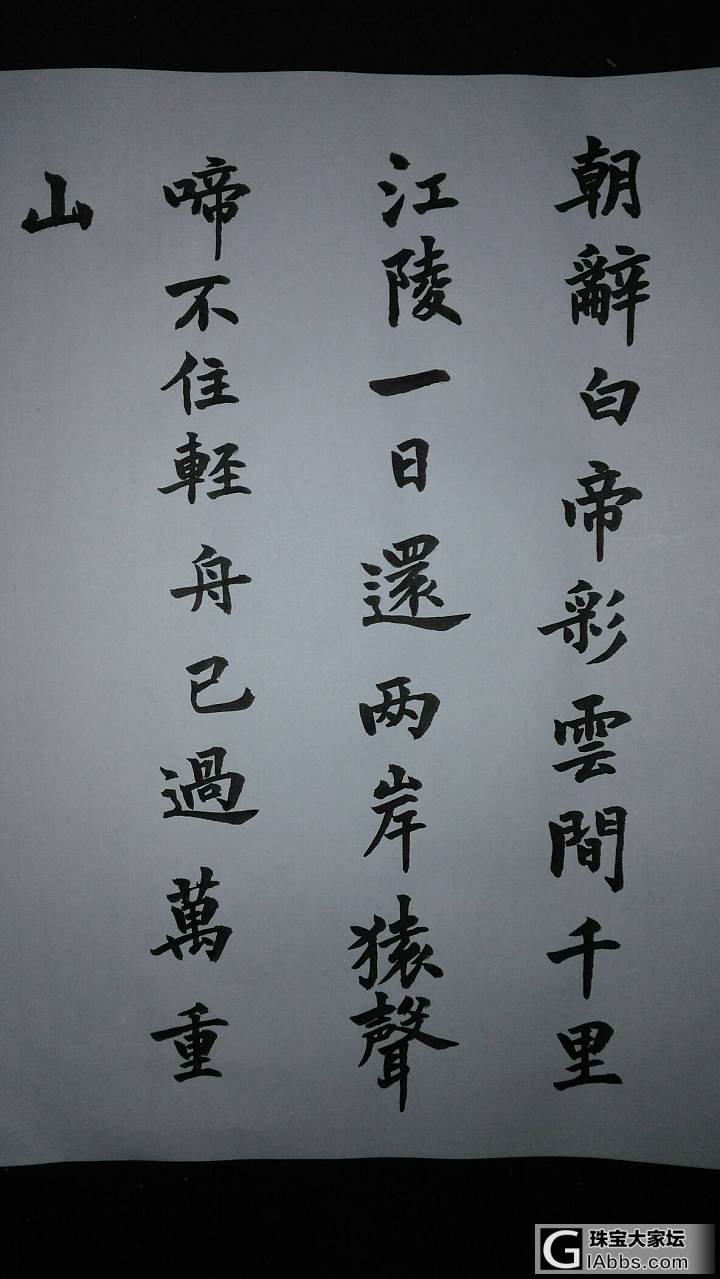 朝辭白帝彩雲間千里
江陵一日還两岸猿聲
啼不住輕舟已過萬重
山
G 珠宝大家坛
GIAbbs.com